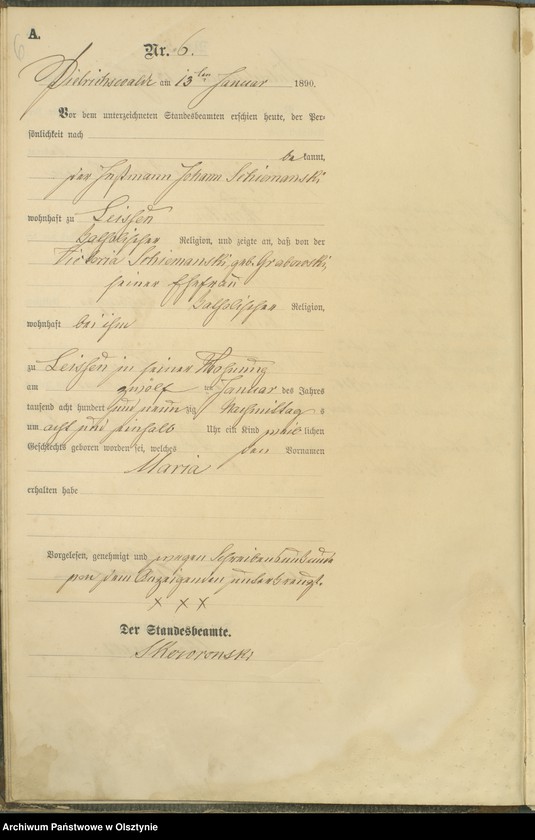 6
A.
Nr. 6.
Dietrichswalde am 13ten Januar 1890.
Vor dem unterzeichneten Standesbeamten erschien heute, der Per-
sönlichkeit nach
bekannt,
der Instmann Johann Schiemanski,
wohnhaft zu Leissen
katholischer Religion, und zeigte an, daß von der
Victoria Schiemanski, geb. Grabowski,
seiner Ehefrau
katholischer Religion,
wohnhaft bei ihm
zu Leissen in seiner Wohnung
am zwölf ten Januar des Jahres
tausend acht hundert und neunzig Nachmittag s
um acht und einhalb Uhr ein Kind weib lichen
Geschlechts geboren worden sei, welches den Vornamen
Maria
erhalten habe
Vorgelesen, genehmigt und wegen Schreibensunkunde
von dem Anzeigenden unterkreuzt.
× × ×
Der Standesbeamte.
Skowronski
Archiwum Państwowe w Olsztynie